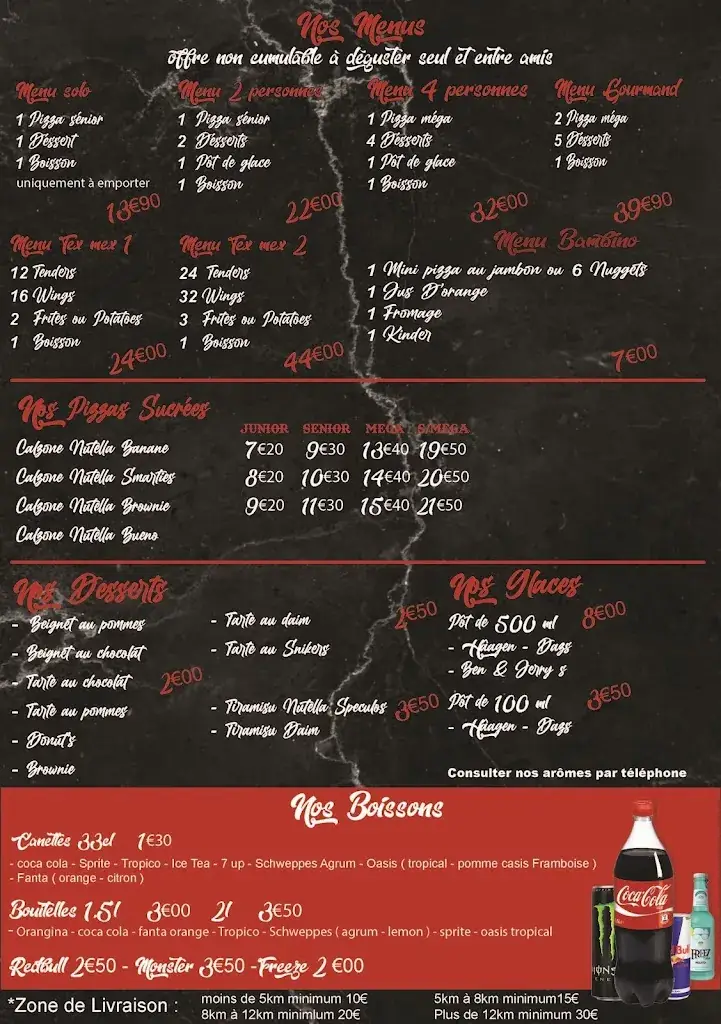 Nos Menus
offre non cumulable à déguster seul et entre amis
Menu solo
1 Pizza sénior
1 Déssert
1 Boisson
uniquement à emporter
13€90
Menu 2 personnes
1 Pizza sénior
2 Désserts
1 Pôt de glace
1 Boisson
22€00
Menu 4 personnes
1 Pizza méga
4 Désserts
1 Pôt de glace
1 Boisson
32€00
Menu Gourmand
2 Pizza méga
5 Désserts
1 Boisson
39€90
Menu Tex mex 1
12 Tenders
16 Wings
2 Frites ou Potatoes
1 Boisson
24€00
Menu Tex mex 2
24 Tenders
32 Wings
3 Frites ou Potatoes
1 Boisson
44€00
Menu Bambino
1 Mini pizza au jambon ou 6 Nuggets
1 Jus D'orange
1 Fromage
1 Kinder
7€00
Nos Pizzas Sucrées
JUNIOR SENIOR MEGA S/MEGA
Calzone Nutella Banane 7€20 9€30 13€40 19€50
Calzone Nutella Smarties 8€20 10€30 14€40 20€50
Calzone Nutella Brownie 9€20 11€30 15€40 21€50
Calzone Nutella Bueno
Nos Desserts
- Beignet au pommes
- Beignet au chocolat
- Tarte au chocolat
- Tarte au pommes
- Donut's
- Brownie
2€00
- Tarte au daim
- Tarte au Snikers
2€50
- Tiramisu Nutella Speculos
- Tiramisu Daim
3€50
Nos Glaces
Pôt de 500 ml 8€00
- Häagen - Dazs
- Ben & Jerry s
Pôt de 100 ml 3€50
- Häagen - Dazs
Consulter nos arômes par téléphone
Nos Boissons
Canettes 33cl 1€30
- coca cola - Sprite - Tropico - Ice Tea - 7 up - Schweppes Agrum - Oasis ( tropical - pomme casis Framboise )
- Fanta ( orange - citron )
Bouitelles 1.5l 3€00 2l 3€50
- Orangina - coca cola - fanta orange - Tropico - Schweppes ( agrum - lemon ) - sprite - oasis tropical
Redbull 2€50 - Monster 3€50 -Freeze 2€00
Coca-Cola
*Zone de Livraison :
moins de 5km minimum 10€
8km à 12km minimlum 20€
5km à 8km minimum15€
Plus de 12km minimum 30€